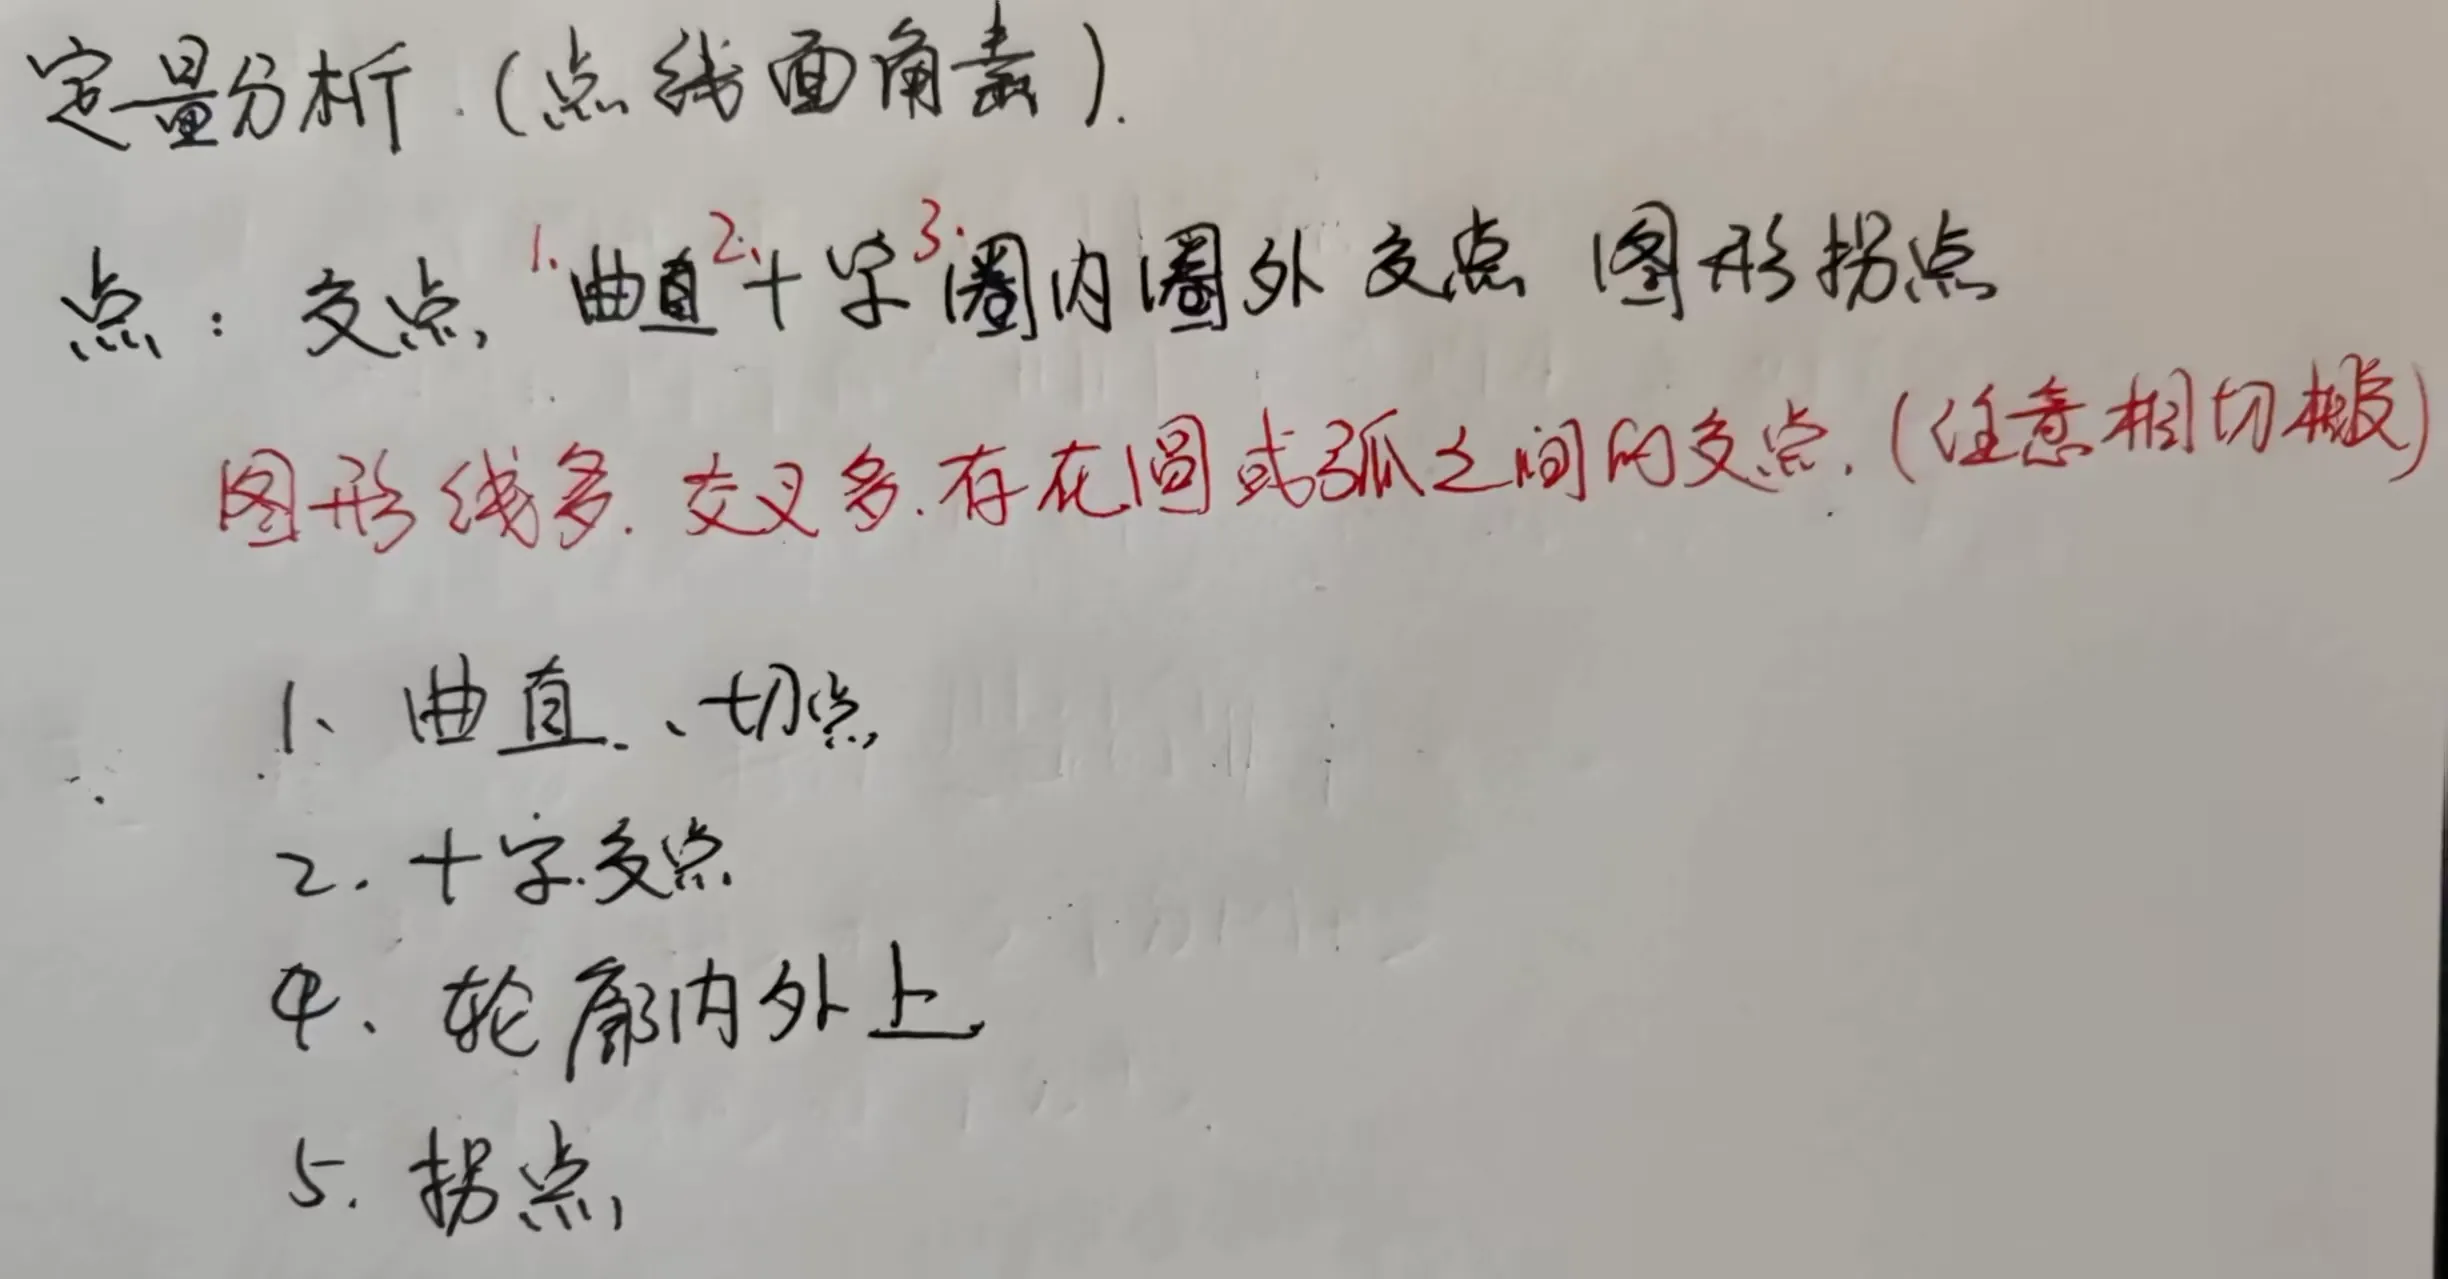 定量分析.(点线面角素).
点：交点, 1.曲直 2.十字 3.圈内圈外交点 图形拐点
图形线多.交叉多.存在圆或弧之间的交点.(任意相切)
1、曲直、切点
2.十字.交点
4、轮廓内外上
5.拐点